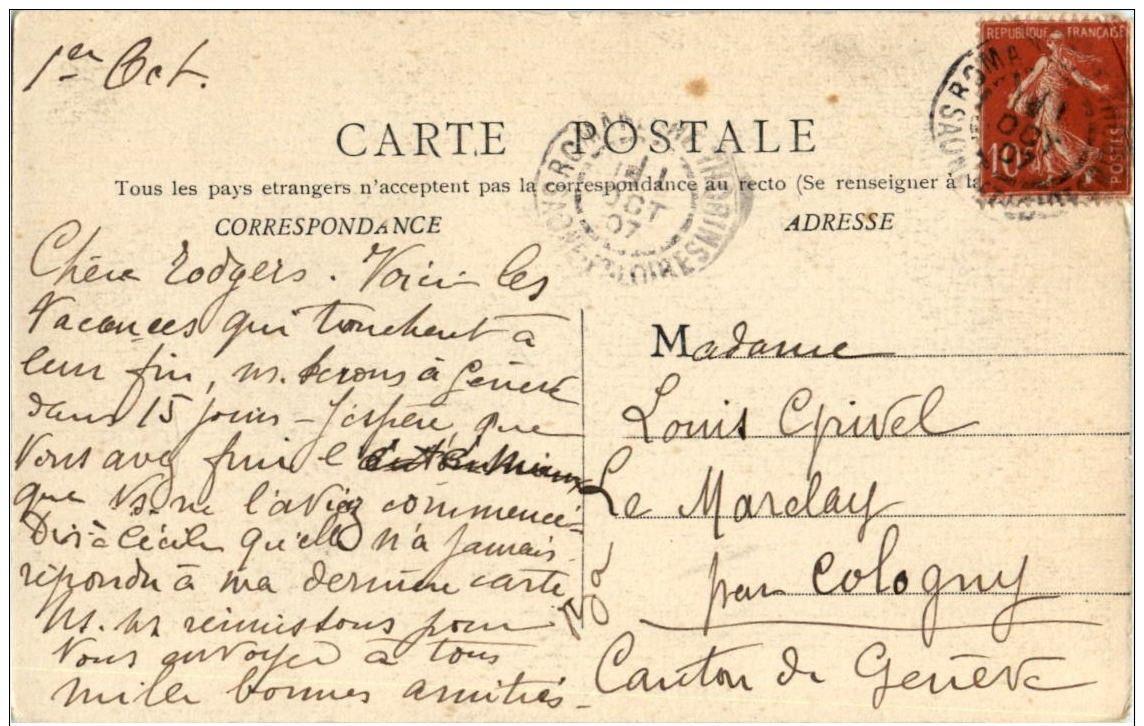 1er Oct.
RÉPUBLIQUE FRANÇAISE
10c
POSTES
CARTE POSTALE
Tous les pays etrangers n'acceptent pas la correspondance au recto (Se renseigner à la
CORRESPONDANCE
ADRESSE
ROMANÈCHE-THORINS
SAÔNE-&-LOIRE
1
OCT
07
Chère Rodgers. Voici les
vacances qui touchent à
leur fin, ns. serons à Genève
dans 15 jours - J'espère que
vous avez fini l'
que vs. ne l'aviez commencé -
Dis à Cécile qu'elle n'a jamais
répondu à ma dernière carte
Ns. ns réunissons pour
vous envoyer à tous
mille bonnes amitiés -
Madame
Louis
Le
par Cologny
Canton de Genève